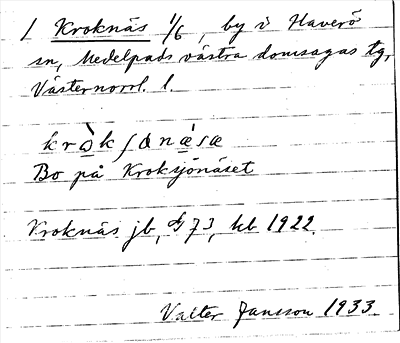 1 Kroknäs 1/6, by i Haverö
sn, Medelpads västra domsagas tg,
Västernorrl. l.
Bo på Kroksjönäset
Kroknäs jb, G 73, kb 1922.
Valter Jansson 1933.